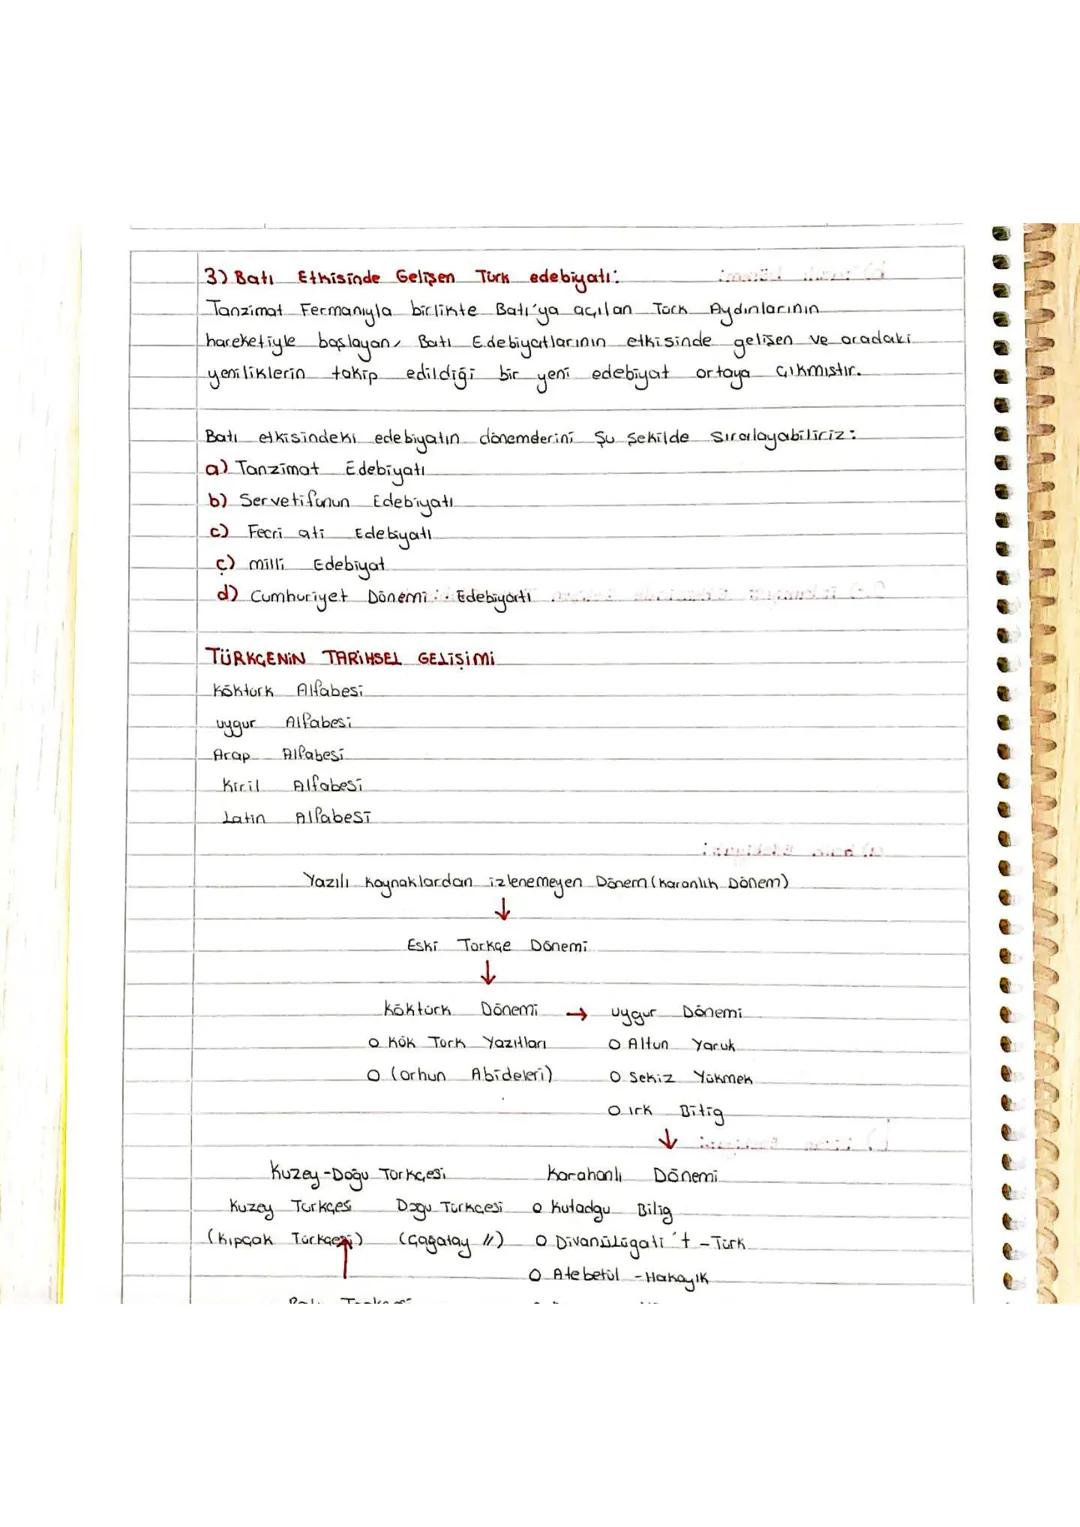 3) Batı Etkisinde Gelişen Türk edebiyatı:
Tanzimat Fermanıyla birlikte Batı'ya açılan Türk Aydınlarının
hareketiyle başlayan, Batı Edebiyatlarının etkisinde gelişen ve oradaki
yeniliklerin takip edildiği bir yeni edebiyat ortaya çıkmıştır.
Batı etkisindeki edebiyatın dönemlerini şu şekilde sıralayabiliriz:
a) Tanzimat Edebiyatı
b) Servetifunun Edebiyatı
c) Fecri ati Edebiyatı
ç) milli Edebiyat
d) Cumhuriyet Dönemi Edebiyatı
TÜRKÇENİN TARİHSEL GELİŞİMİ
Köktürk Alfabesi
uygur Alfabesi
Arap Alfabesi
Kiril Alfabesi
Latin Alfabesi
Yazılı kaynaklardan izlenemeyen Dönem (Karanlık Dönem)
↓
Eski Türkçe Dönemi
↓
Köktürk Dönemi → uygur Dönemi
o Kök Türk Yazıtları o Altun Yaruk
o (orhun Abideleri) o Sekiz Yükmek
o ırk Bitig
↓
Kuzey-Doğu Türkçesi Karahanlı Dönemi
Kuzey Türkçesi Doğu Türkçesi o Kutadgu Bilig
(Kıpçak Türkçesi) (Çağatay //) o Divanülügati't-Türk
o Atebetül-Hakayık